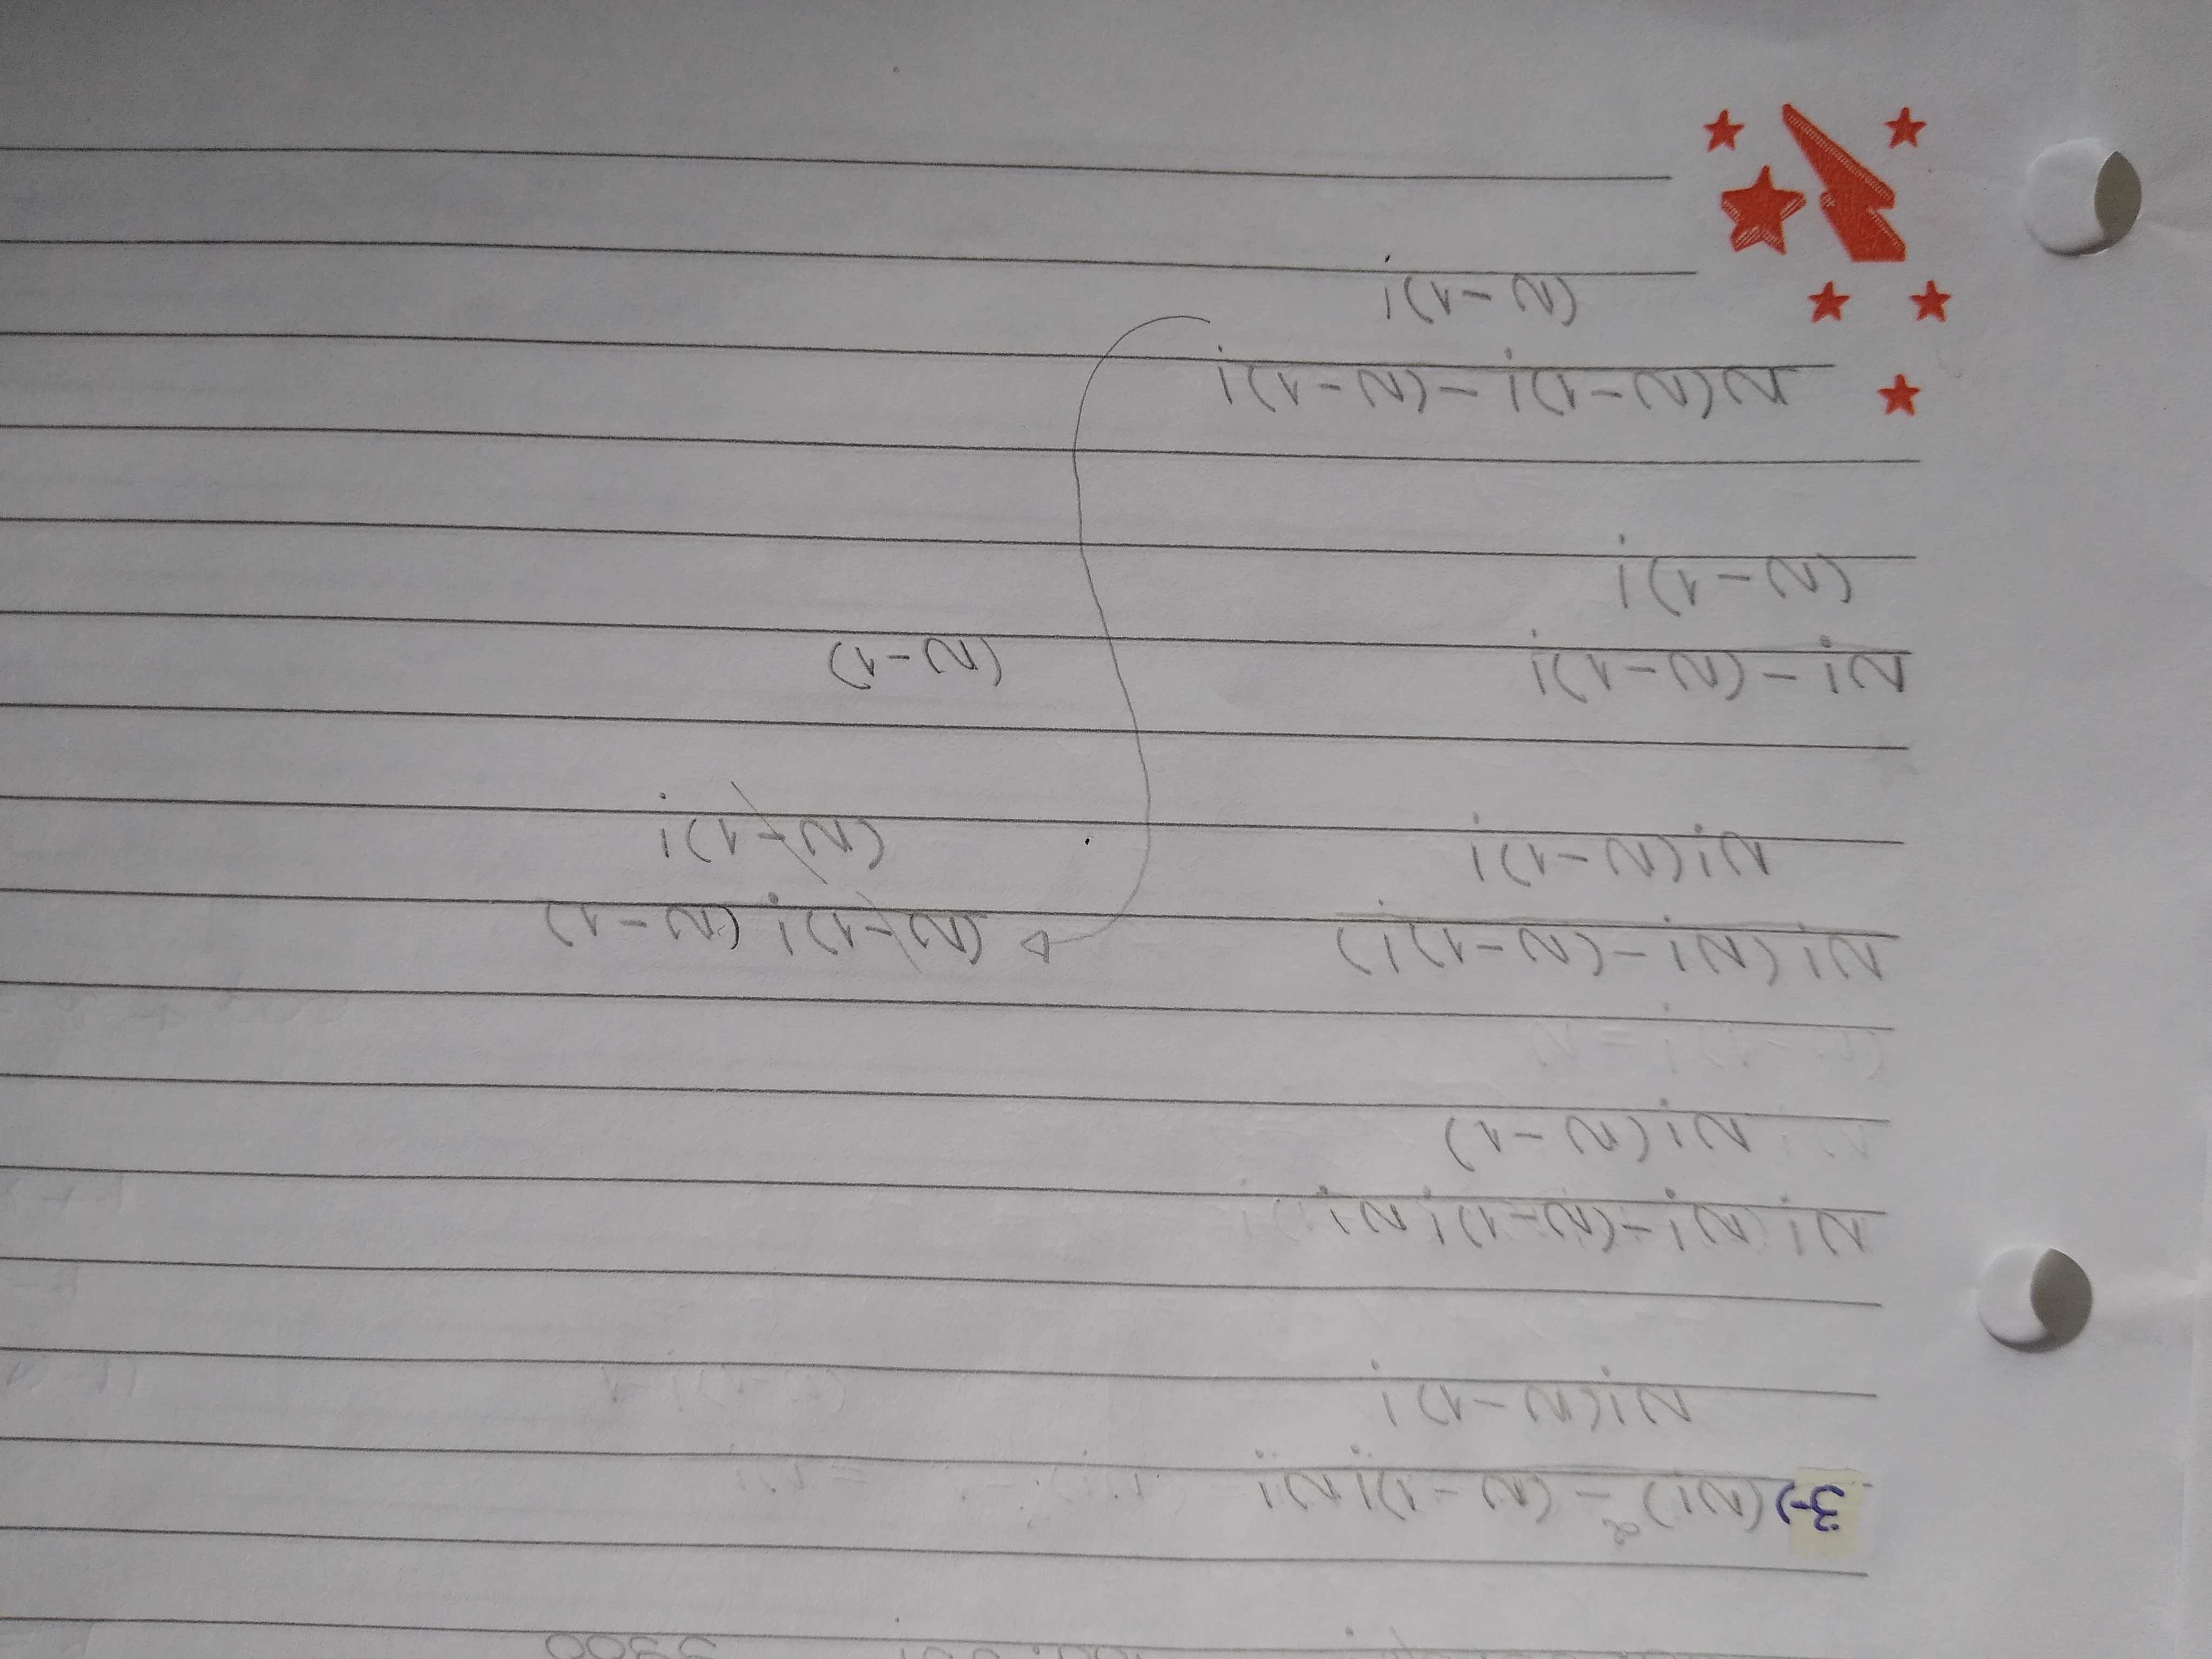 3-) (N!)² - (N-1)! N!
N!(N-1)!
N! (N! - (N-1)! N!
N! (N-1)
N! (N! - (N-1)!)
N! (N-1)!
N! - (N-1)!
(N-1)!
N(N-1)! - (N-1)!
(N-1)!
(N-1)! (N-1)
(N-1)!
(N-1)